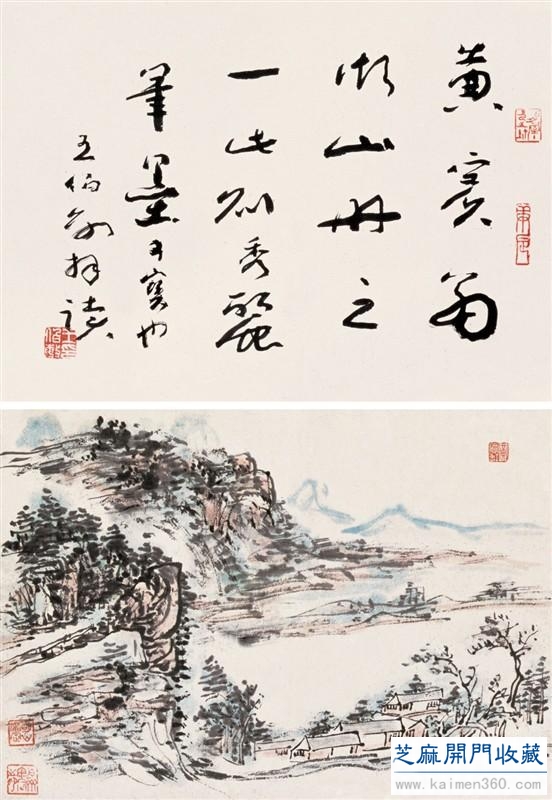 黄賓翁
湖山册之
一此秀
筆墨可寶也
王伯敏拜讀
芝麻開門收藏
www.kaimen360.com